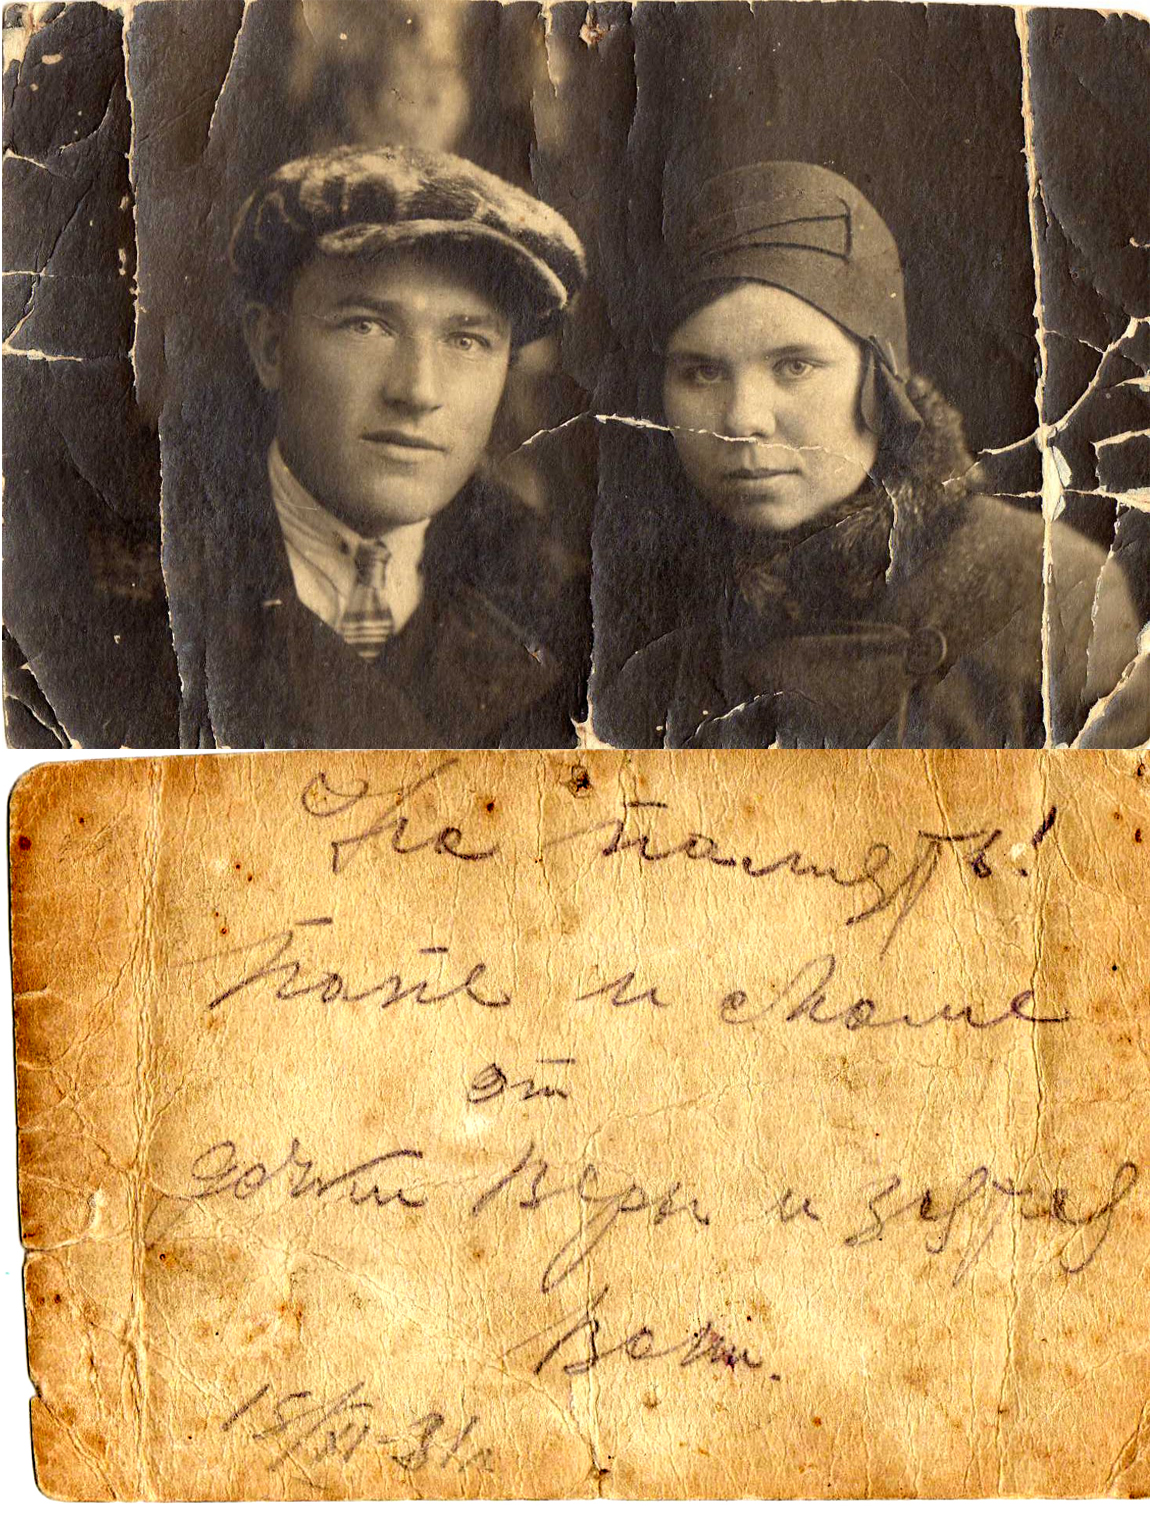 На память!
Папе и Маме
от
дочки Веры и зятев
Вани.
15/XI-31г